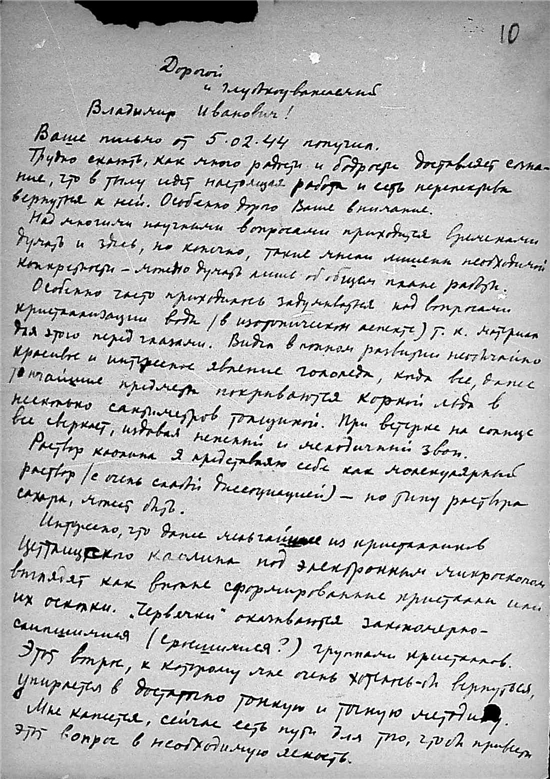 10
Дорогой
и глубокоуважаемый
Владимир Иванович!
Ваше письмо от 5.02.44 получил.
Трудно сказать, как много радости и бодрости доставляет созна-
ние, что в тылу идет настоящая работа и есть перспектива
вернуться к ней. Особенно дорого Ваше внимание.
Над многими научными вопросами приходится временами
думать и здесь, но конечно, такие мысли лишены необходимой
конкретности – можно думать лишь об общем плане работ.
Особенно часто приходилось задумываться над вопросами
кристаллизации воды (в изотопическом аспекте) т. к. материал
для этого перед глазами. Видел в полном развитии необычайно
красивое и интересное явление гололеда, когда все, даже
тончайшие предметы покрываются коркой льда в
несколько сантиметров толщиной. При ветерке на солнце
все сверкает, издавая нежный и мелодичный звон.
Раствор каолина я представляю себе как молекулярный
раствор (с очень слабой диссоциацией) – по типу раствора
сахара, может быть.
Интересно, что даже мельчайшие из кристалликов
каолина под электронным микроскопом
выглядят как вполне сформированные кристаллы или
их осколки. "Червячки" оказываются закономерно-
слипшимися (сросшимися?) группами кристаллов.
Этот вопрос, к которому мне очень хотелось-бы вернуться,
упирается в достаточно тонкую и точную методику.
Мне кажется, сейчас есть пути для того, чтобы привести
этот вопрос в необходимую ясность.